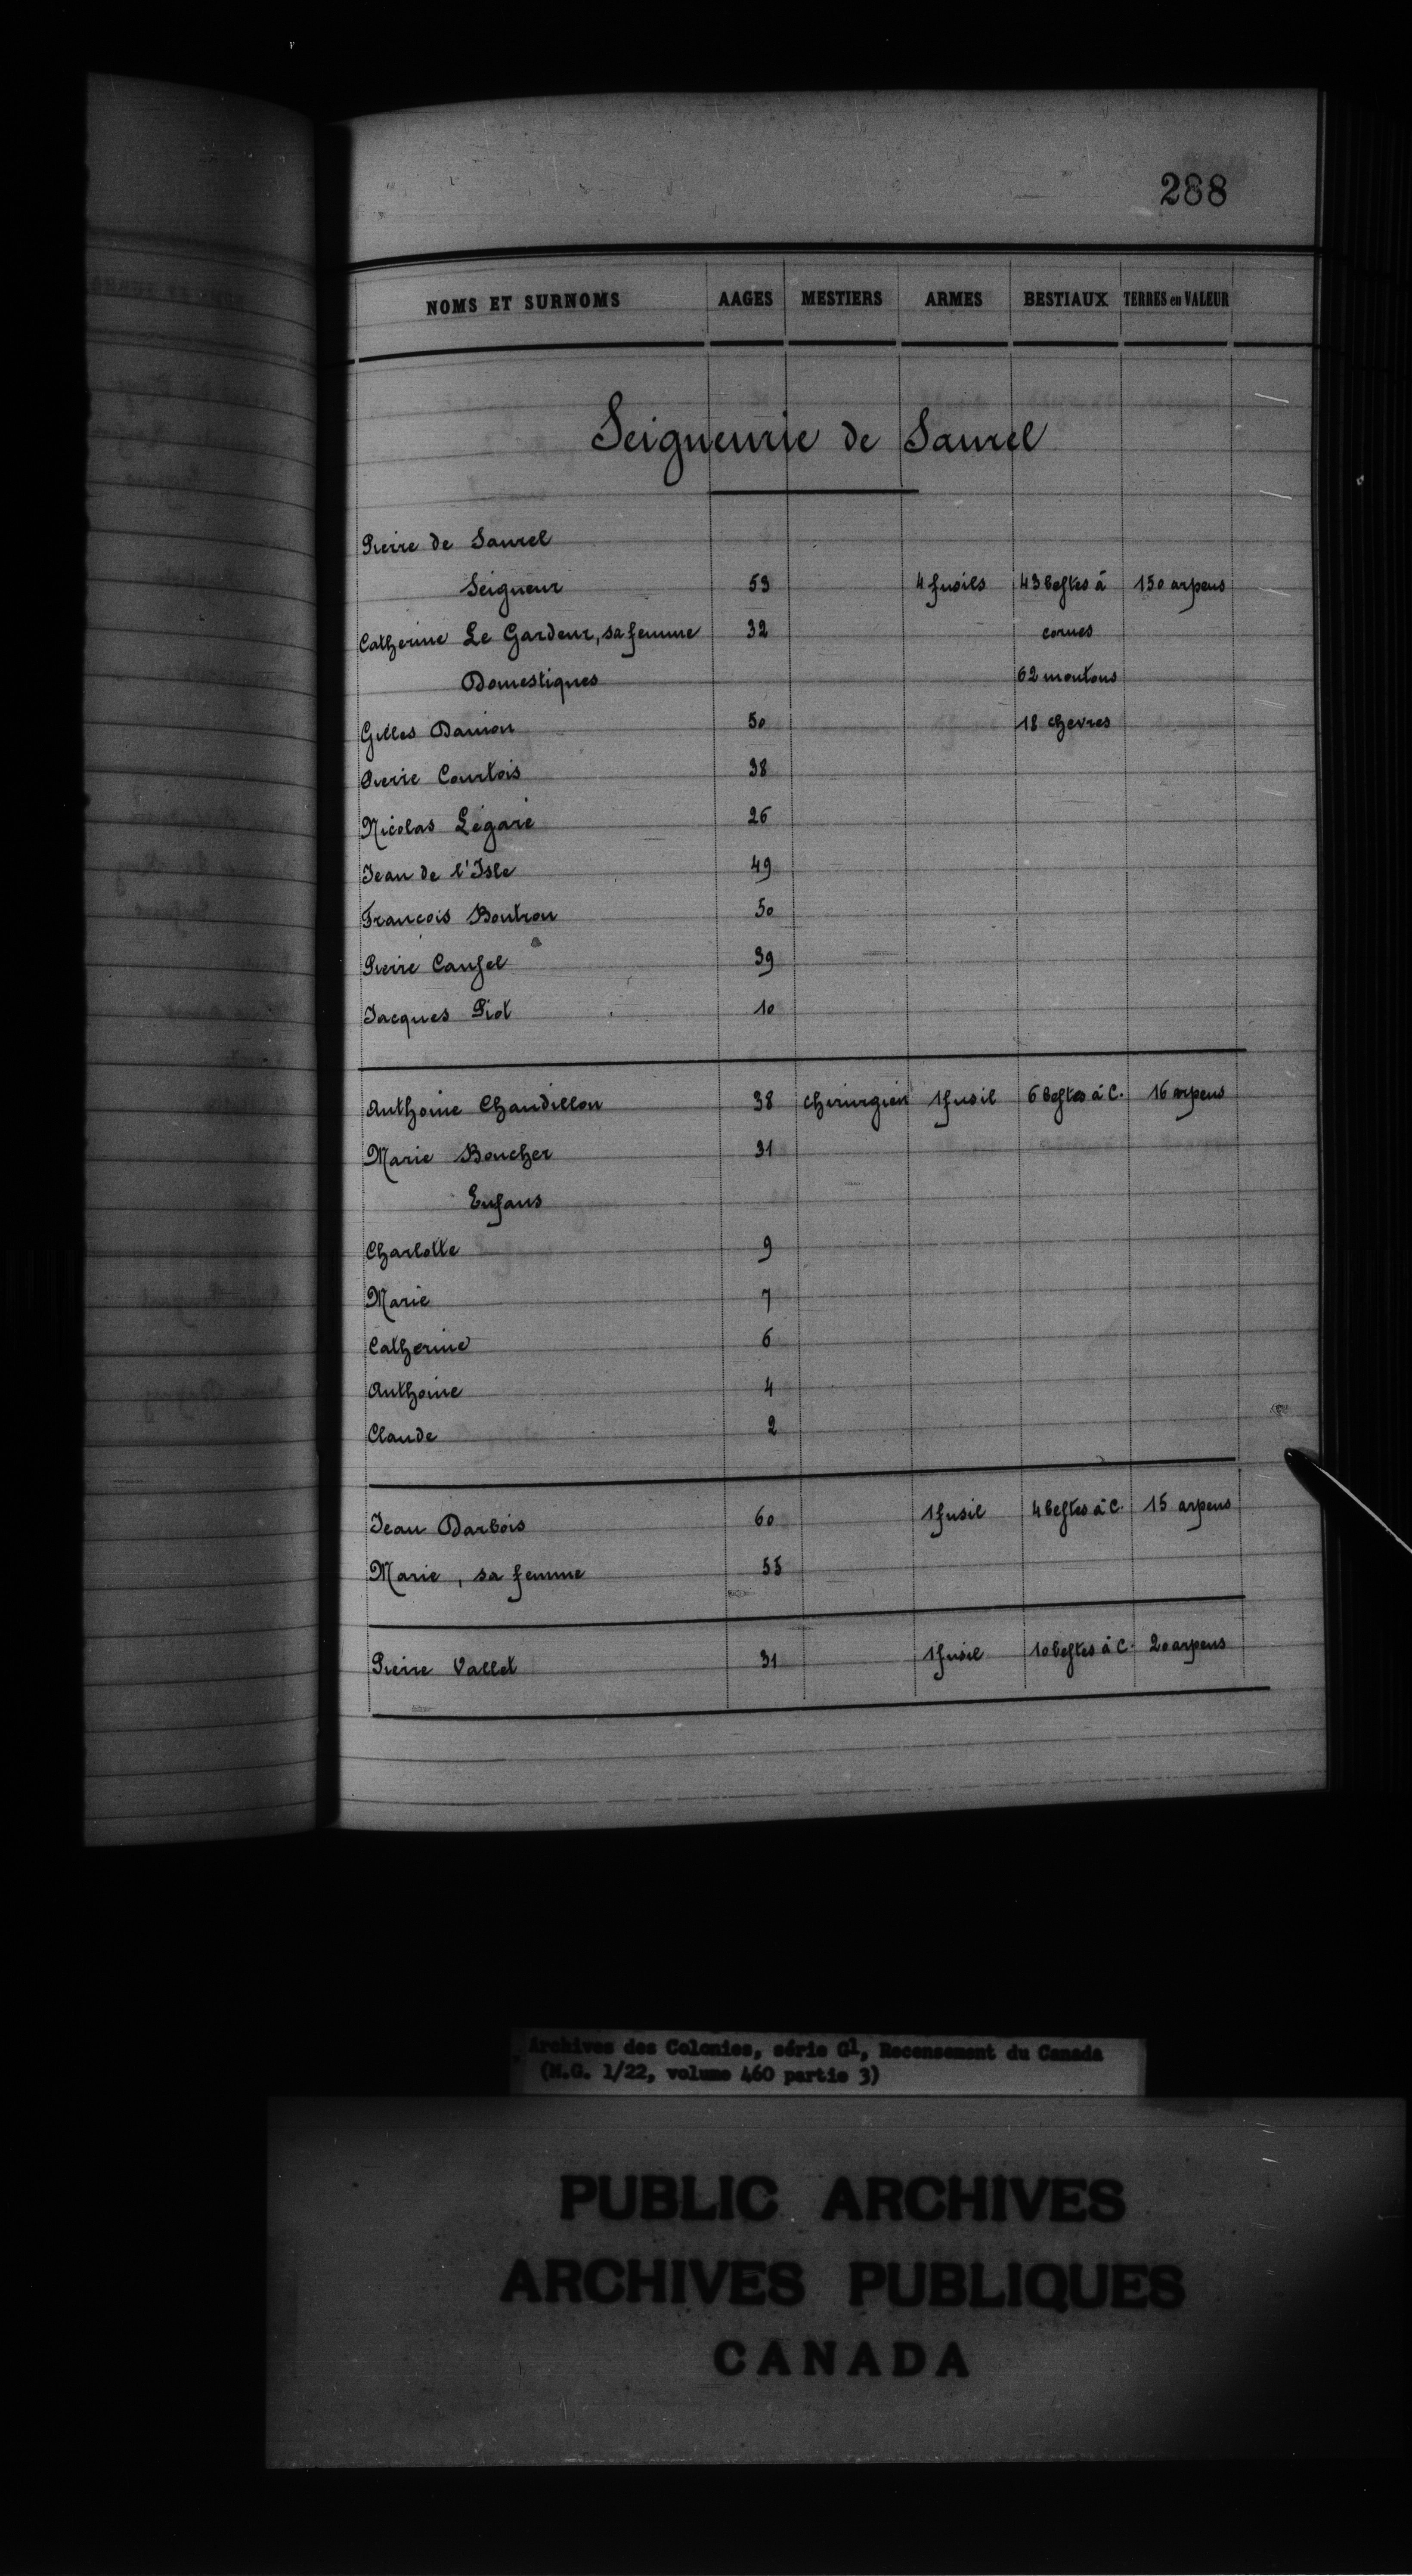 288
NOMS ET SURNOMS AAGES MESTIERS ARMES BESTIAUX TERRES en VALEUR
Seigneurie de Saurel
Pierre de Saurel
Seigneur 53 4 fusils 43 bestes à 150 arpens
Catherine Le Gardeur, sa femme 32 cornes
Domestiques 62 moutons
Gilles Danion 50 18 chevres
Pierre Courtois 38
Nicolas Légaré 26
Jean de l'Isle 49
François Boutron 50
Pierre 39
Jacques Piot 10
Anthoine Chaudillon 38 chirurgien 1 fusil 6 bestes à C. 16 arpens
Marie Boucher 31
Enfans
Charlotte 9
Marie 7
Catherine 6
Anthoine 4
Claude 2
Jean Darbois 60 1 fusil 4 bestes à C. 15 arpens
Marie, sa femme 55
Pierre Vallet 31 1 fusil 10 bestes à C. 20 arpens
Archives des Colonies, série G1, Recensement du Canada
(M.G. 1/22, volume 460 partie 3)
PUBLIC ARCHIVES
ARCHIVES PUBLIQUES
CANADA